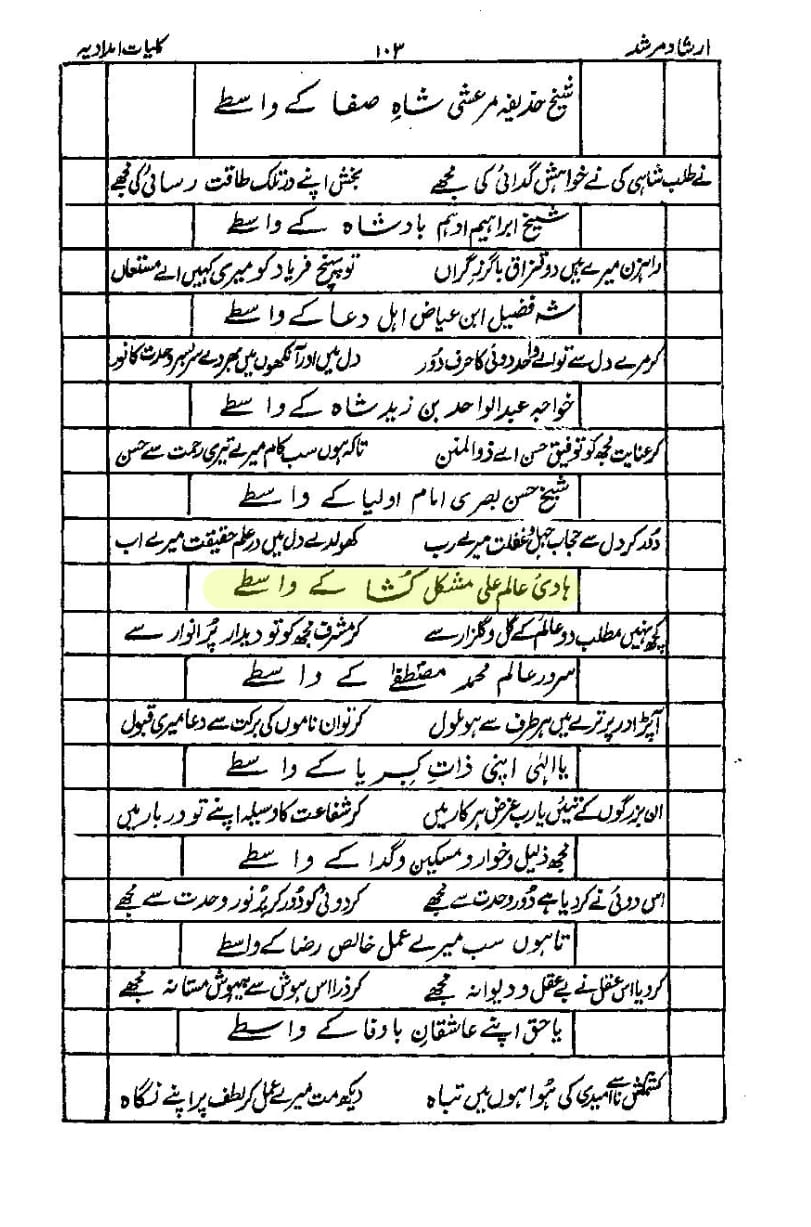 ارشاد مرشد ۱۰۳ کلیات امدادیہ
شیخ حذیفہ مرعشی شاہِ صفا کے واسطے
نے طلب شاہی کی نے خواہش گدائی کی مجھے بخش اپنے در تلک طاقت رسائی کی مجھے
شیخ ابراہیم ادہم بادشاہ کے واسطے
راہزن میرے ہیں دو قزاق باگرز گراں تو پہنچ فریاد کو میری کہیں اے مستعاں
شہ فضیل ابن عیاض اہل دعا کے واسطے
کر مرے دل سے تو اے واحد دوئی کا حرف دُور دل میں اور آنکھوں میں بھر دے سر بسر وحدت کا نور
خواجہ عبدالواحد بن زید شاہ کے واسطے
کر عنایت مجھ کو توفیق حسن اے ذوالمنن تاکہ ہوں سب کام میرے تیری رحمت سے حسن
شیخ حسن بصری امام اولیا کے واسطے
دُور کر دل سے حجاب جہل و غفلت میرے رب کھولدے دل میں در علم حقیقت میرے اب
ہادیٔ عالم علی مشکل کُشا کے واسطے
کچھ نہیں مطلب دو عالم کے گل و گلزار سے کر مشرف مجھ کو تو دیدار پُر انوار سے
سرور عالم محمد مصطفےٰ کے واسطے
آپڑا در پر ترے میں ہر طرف سے ہو ملول کر تو ان ناموں کی برکت سے دعا میری قبول
یا الٰہی اپنی ذاتِ کبریا کے واسطے
ان بزرگوں کے تئیں یارب غرض ہر کار میں کر شفاعت کا وسیلہ اپنے تو دربار میں
مجھ ذلیل و خوار و مسکین و گدا کے واسطے
اس دوئی نے کر دیا ہے دُور وحدت سے مجھے کر دوئی کو دُور کر پُر نور وحدت سے مجھے
تا ہوں سب میرے عمل خالص رضا کے واسطے
کر دیا اس عقل نے بے عقل و دیوانہ مجھے کر ذرا اس ہوش سے بیہوش مستانہ مجھے
یا حق اپنے عاشقانِ باوفا کے واسطے
کشمکش سے نا امیدی کی ہُوا ہوں میں تباہ دیکھ مت میرے عمل کر لطف پر اپنے نگاہ